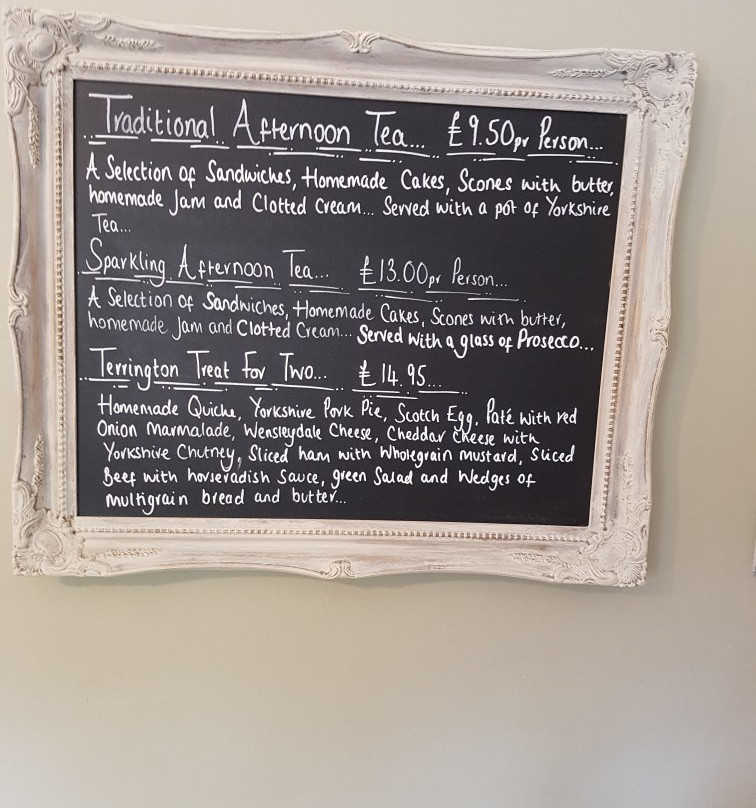 Traditional Afternoon Tea... £9.50pr Person...
A Selection of Sandwiches, Homemade Cakes, Scones with butter,
homemade Jam and Clotted Cream... Served with a pot of Yorkshire
Tea...
Sparkling Afternoon Tea... £13.00pr Person...
A Selection of Sandwiches, Homemade Cakes, Scones with butter,
homemade Jam and Clotted Cream... Served with a glass of Prosecco...
Terrington Treat For Two... £14.95...
Homemade Quiche, Yorkshire Pork Pie, Scotch Egg, Paté with red
Onion Marmalade, Wensleydale Cheese, Cheddar Cheese with
Yorkshire Chutney, Sliced ham with Wholegrain mustard, Sliced
Beef with horseradish Sauce, green Salad and Wedges of
multigrain bread and butter...